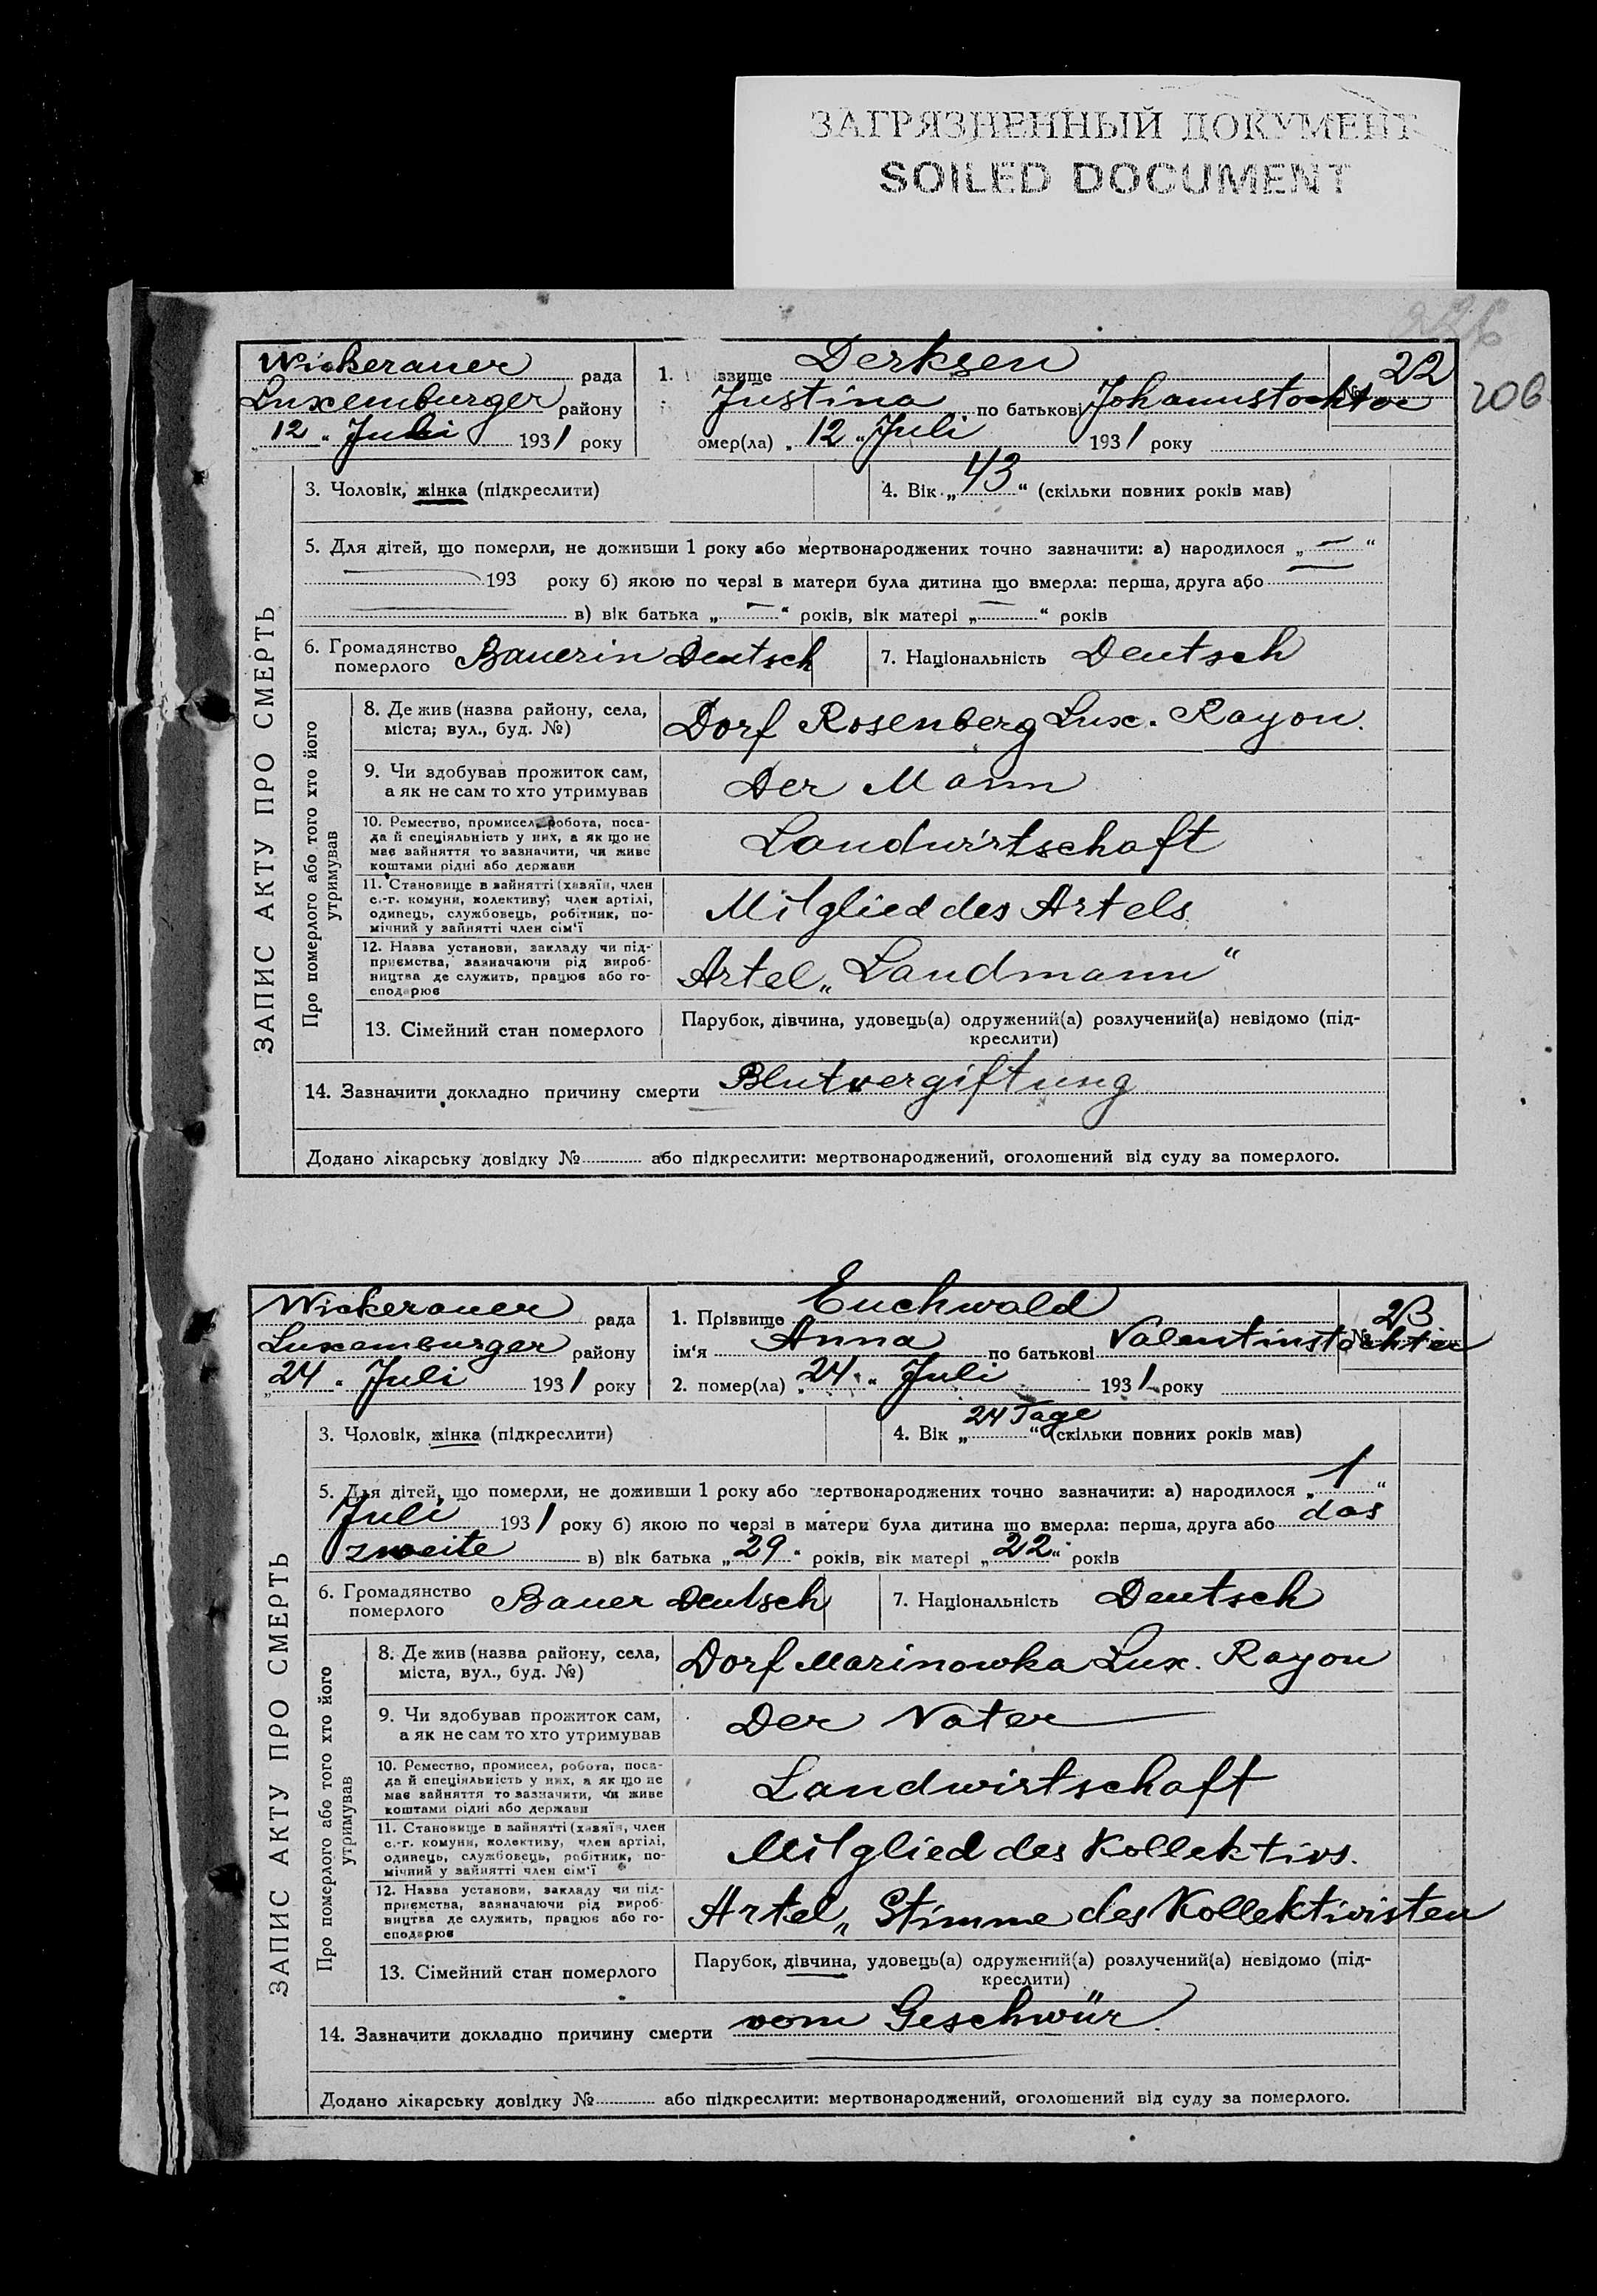 ЗАГРЯЗНЕННЫЙ ДОКУМЕНТ
SOILED DOCUMENT
206
Wickerauer рада
Luxemburger району
„12„ Juli 1931 року
1. ізвище Derksen
Justina по батькові Johannstochter
№ 22
омер(ла) „12„ Juli 1931 року
ЗАПИС АКТУ ПРО СМЕРТЬ
3. Чоловік, жінка (підкреслити)
4. Вік „43“ (скільки повних років мав)
5. Для дітей, що померли, не доживши 1 року або мертвонароджених точно зазначити: а) народилося „—“
193 року б) якою по черзі в матери була дитина що вмерла: перша, друга або —
в) вік батька „—“ років, вік матері „—“ років
6. Громадянство померлого Bauerin Deutsch
7. Національність Deutsch
Про померлого або того хто його утримував
8. Де жив (назва району, села, міста; вул., буд. №) Dorf Rosenberg Lux. Rayon.
9. Чи здобував прожиток сам, а як не сам то хто утримував Der Mann
10. Ремество, промисел, робота, поса-
да й спеціяльність у них, а як що не
має зайняття то зазначити, чи живе
коштами рідні або держави
Landwirtschaft
11. Становище в зайнятті (хазяїн, член
с.-г. комуни, колективу, член артілі,
одинець, службовець, робітник, по-
мічний у зайнятті член сім'ї
Mitglied des Artels.
12. Назва установи, закладу чи під-
приємства, зазначаючи рід вироб-
ництва де служить, працює або го-
сподарює
Artel „Landmann“
13. Сімейний стан померлого
Парубок, дівчина, удовець(а) одружений(а) розлучений(а) невідомо (під-
креслити)
14. Зазначити докладно причину смерти Blutvergiftung
Додано лікарську довідку № або підкреслити: мертвонароджений, оголошений від суду за померлого.
Wickerauer рада
Luxemburger району
„24„ Juli 1931 року
1. Прізвище Euchwald
ім'я Anna по батькові Valentinstochter
№ 23
2. помер(ла) „24„ Juli 1931 року
ЗАПИС АКТУ ПРО СМЕРТЬ
3. Чоловік, жінка (підкреслити)
4. Вік „24 Tage“ (скільки повних років мав)
5. Для дітей, що померли, не доживши 1 року або мертвонароджених точно зазначити: а) народилося „1“
Juli 1931 року б) якою по черзі в матери була дитина що вмерла: перша, друга або das
zweite в) вік батька „29“ років, вік матері „22“ років
6. Громадянство померлого Bauer Deutsch
7. Національність Deutsch
Про померлого або того хто його утримував
8. Де жив (назва району, села, міста, вул., буд. №) Dorf Marinowka Lux. Rayon
9. Чи здобував прожиток сам, а як не сам то хто утримував Der Vater
10. Ремество, промисел, робота, поса-
да й спеціяльність у них, а як що не
має зайняття то зазначити, чи живе
коштами рідні або держави
Landwirtschaft
11. Становище в зайнятті (хазяїн, член
с.-г. комуни, колективу, член артілі,
одинець, службовець, робітник, по-
мічний у зайнятті член сім'ї
Mitglied des Kollektivs.
12. Назва установи, закладу чи під-
приємства, зазначаючи рід вироб-
ництва де служить, працює або го-
сподарює
Artel „Stimme des Kollektivisten
13. Сімейний стан померлого
Парубок, дівчина, удовець(а) одружений(а) розлучений(а) невідомо (під-
креслити)
14. Зазначити докладно причину смерти vom Geschwür.
Додано лікарську довідку № або підкреслити: мертвонароджений, оголошений від суду за померлого.